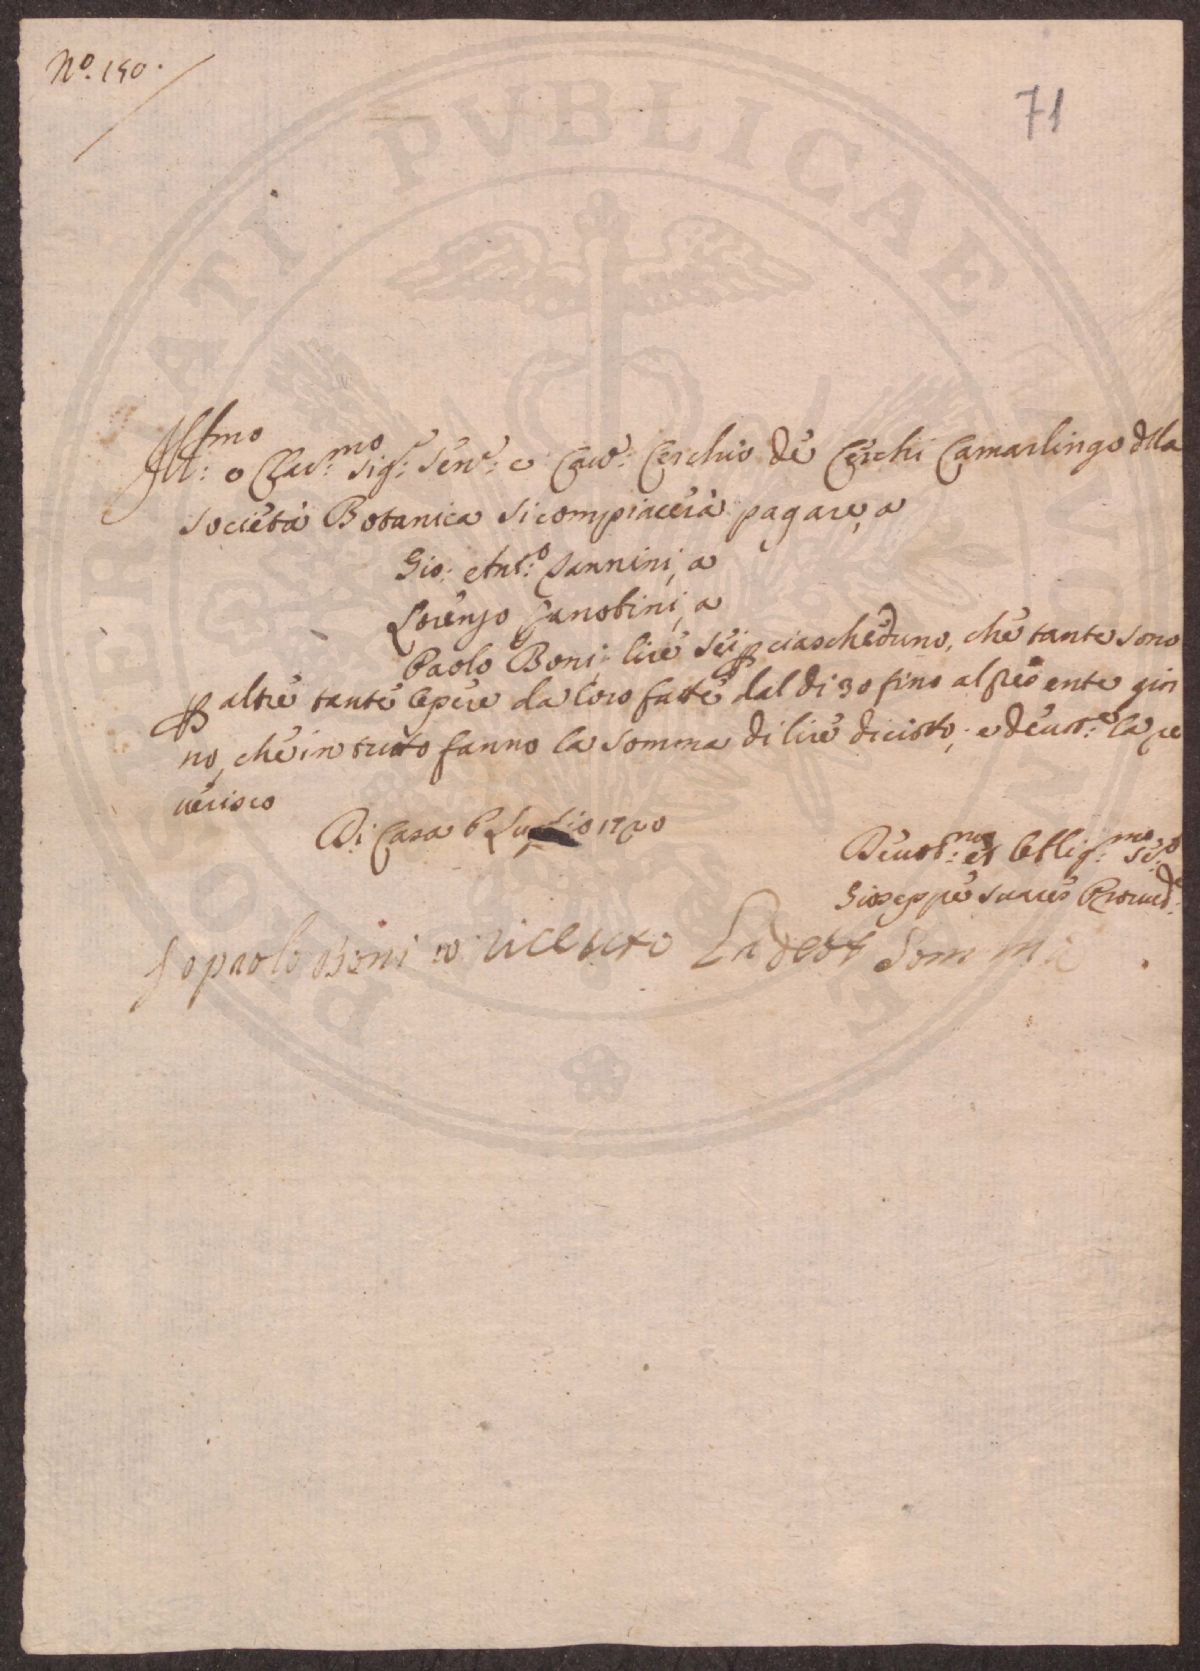 N.º 190.
71
PVBLICAE
Ill:mo e Clar:mo Sig: Sen: e Cav: Cerchio de Cerchi Camarlingo della
società Botanica si compiacerà pagare, a
Gio: Ant:o Nannini, a
Lorenzo Zanobini, a
Paolo Boni lire sei p ciascheduno, che tante sono
p altre tante opere da loro fatte dal di 30 fino al presente gior
no, che in tutto fanno la somma di lire diciotto; e devot:e la re
verisco
Di Casa 6 Luglio 1720
Devot:mo et Obblig:mo Se:e
Gioseppe Suares Proved:e
Io paolo Boni o riceuto La deta Somma